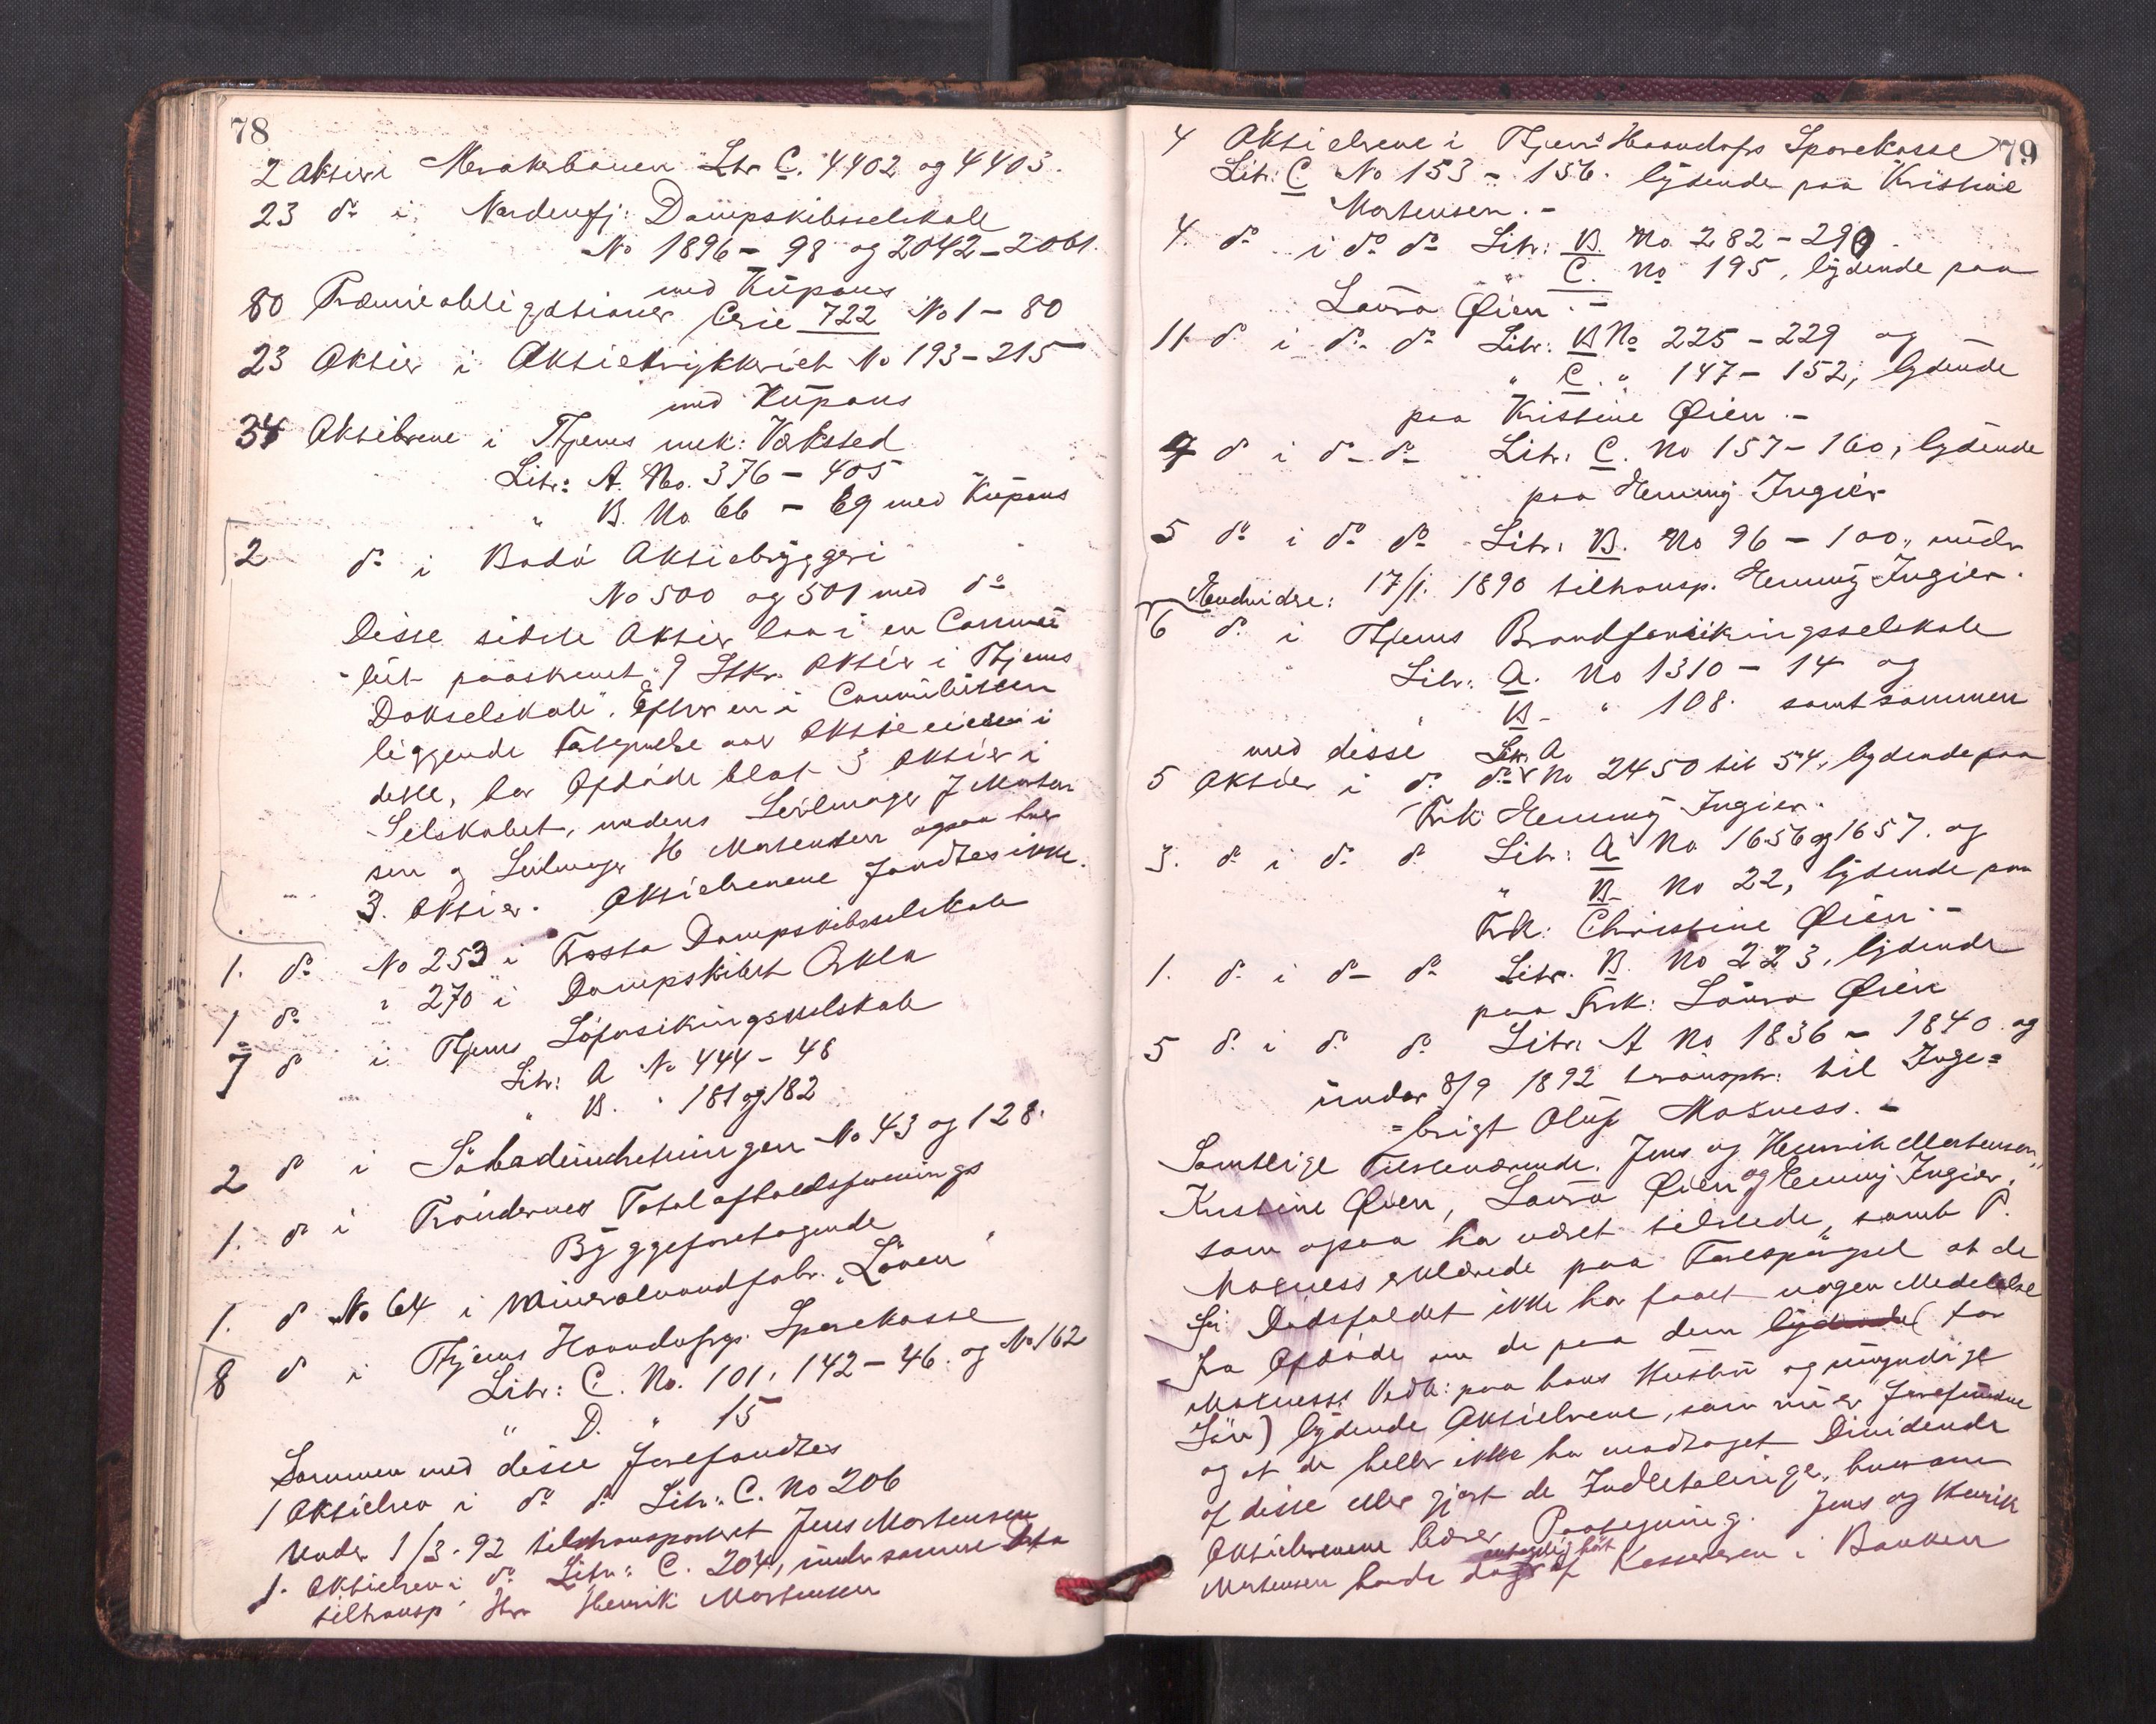 78
2 Aktier i Merakerbanen Ltr C. 4402 og 4403.
23 do i Nordenfj: Dampskibsselskab
No 1896 - 98 og 2042 - 2061.
med Kupons
80 Præmieobligationer Serie 722 No 1 - 80
23 Aktier i Aktietrykkeriet No 193 - 215
med Kupons
34 Aktiebreve i Thjems mek: Værksted
Litr: A. No. 376 - 405
" B. No 66 - 69 med Kupons
2 do i Bodö Aktiebryggeri
No 500 og 501 med do
Disse sidste Aktier laa i en Convo
lut paaskrevet "9 Stkr. Aktier i Thjems
Dokselskab". Efter en i Convolutten
liggende Fortegnelse over Aktieeiere i
dette, har Afdöde blot 3 Aktier i
Selskabet, medens Seilmager J Morten
sen og Seilmager H Mortensen ogsaa har
3. Aktier. Aktiebrevene fandtes ikke.
1. do No 253 i Frosta Dampskibsselskab
1 do " 270 i Dampskibet Orkla
7 do i Thjems Söforsikringsselskab
Litr: A No 444 - 48
" B. " 181 og 182
2 do i Söbadeindretningen No 43 og 128.
1. do i Tröndernes Totalafholdsforenings
Byggeforetagende
1. do No 64 i Mineralvandfabr. "Löven"
8 do i Thjems Haandv. Sparekasse
Litr: C. No. 101, 142 - 46. og No 162
" D. " 15
Sammen med disse forefandtes
1 Aktiebrev i do do Litr: C. No 206
under 1/3 - 92 tiltransporteret Jens Mortensen
1. Aktiebrev i do Litr: C. 204, under samme Dato
tiltransp Hr Henrik Mortensen
79
4 Aktiebreve i Thjems Haandv. Sparekasse
Litr: C No 153 - 156. lydende paa Kristine
Mortensen. -
4. do i do do Litr: B. No 282 - 290.
" C. No 195, lydende paa
Laura Öien. -
11. do i do do Litr: B No 225 - 229 og
" C. " 147 - 152, lydende
paa Kristine Öien. -
4 do i do do Litr. C. No 157 - 160, lydende
paa Hemmy Ingier
5 do i do do Litr: B. No 96 - 100, under
17/1. 1890 tiltransp. Hemmy Ingier.
Endvidre:
6 do i Thjems Brandforsikringsselskab
Litr: A. No 1310 - 14 og
" B - " 108. samt sammen
med disse Litr. A
5 Aktier i do do No 2450 til 54, lydende paa
Frk. Hemmy Ingier.
3. do i do do Litr: A No 1656 og 1657. og
" B - No 22, lydende paa
Frk: Christine Öien -
1. do i do do Litr. B. No 223, lydende
paa Frk: Laura Öien
5 do i do do Litr: A No 1836 - 1840 og
under 8/9 1892 transpr: til Inge=
=brigt Oluf Moxness. -
Samtlige Tilstedværende, Jens og Henrik Mortensen,
Kristine Öien, Laura Öien og Hemmy Ingier,
som ogsaa har været tilstede, samt P.
Moxness erklærede paa Forespörgsel at de
för Dödsfaldet ikke har faaet nogen Meddelelse
fra Afdöde om de paa dem lydende (for
Moxness's Vedk: paa hans Hustru og umyndige
Sön) lydende Aktiebreve, som nu er forefundne
og at de heller ikke har modtaget Dividende
af disse eller gjort de Indbetalinge, hvorom
Aktiebrevene bærer Paategning. Jens og Henrik
Mortensen havde dog af Kassereren i Banken